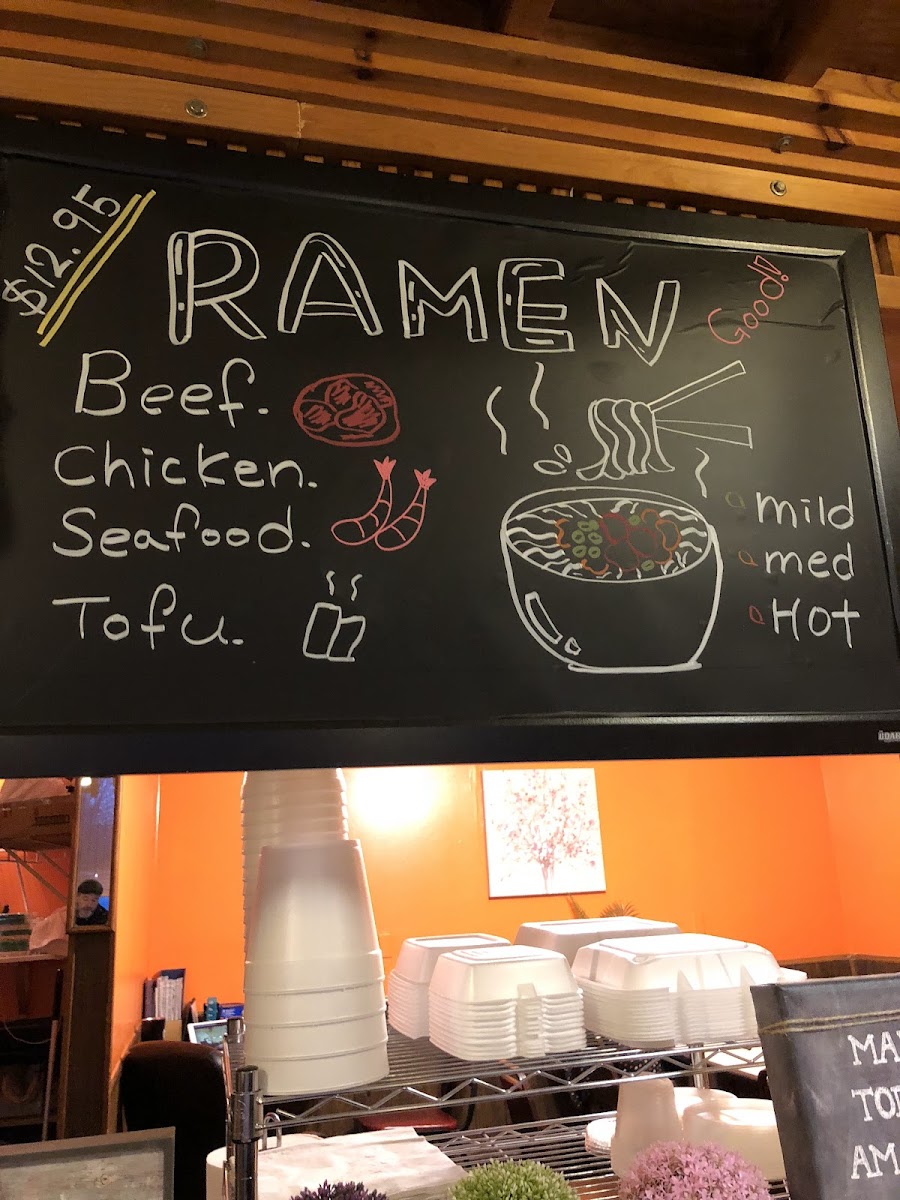 $12.95
RAMEN
Good!!
Beef.
Chicken.
Seafood.
Tofu.
mild
med
HOT